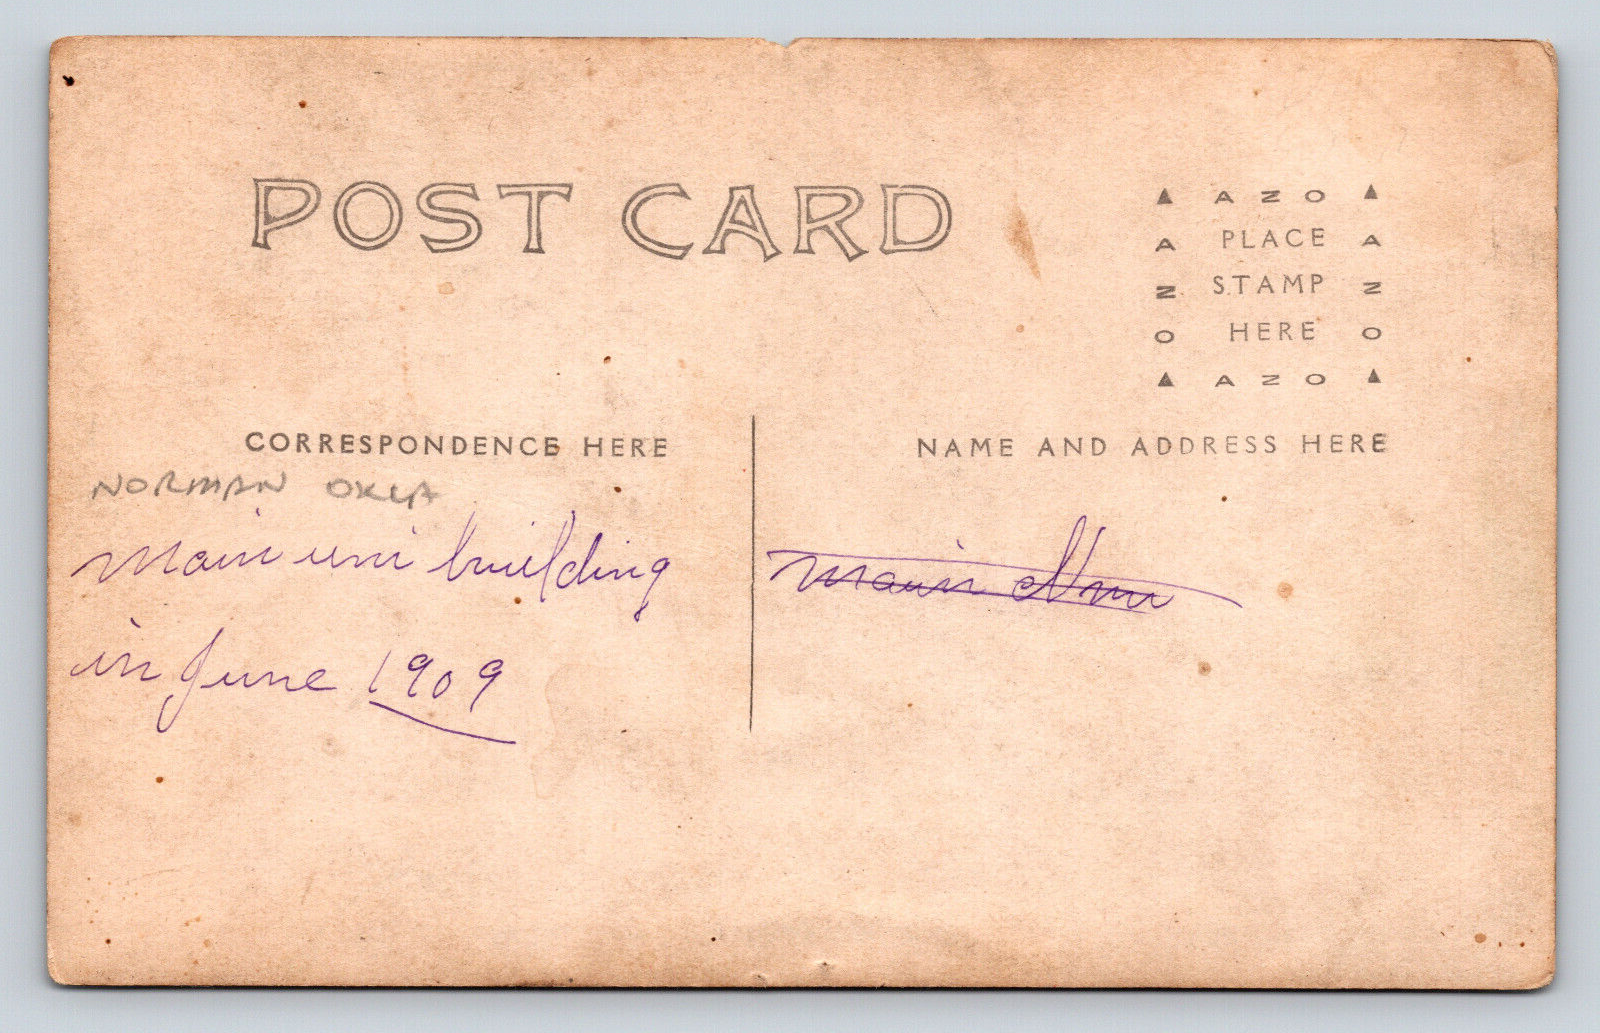 POST CARD
AZO
PLACE
STAMP
HERE
AZO
AZO
AZO
CORRESPONDENCE HERE
NAME AND ADDRESS HERE
NORMAN OKLA
Main uni building
in June 1909
Main